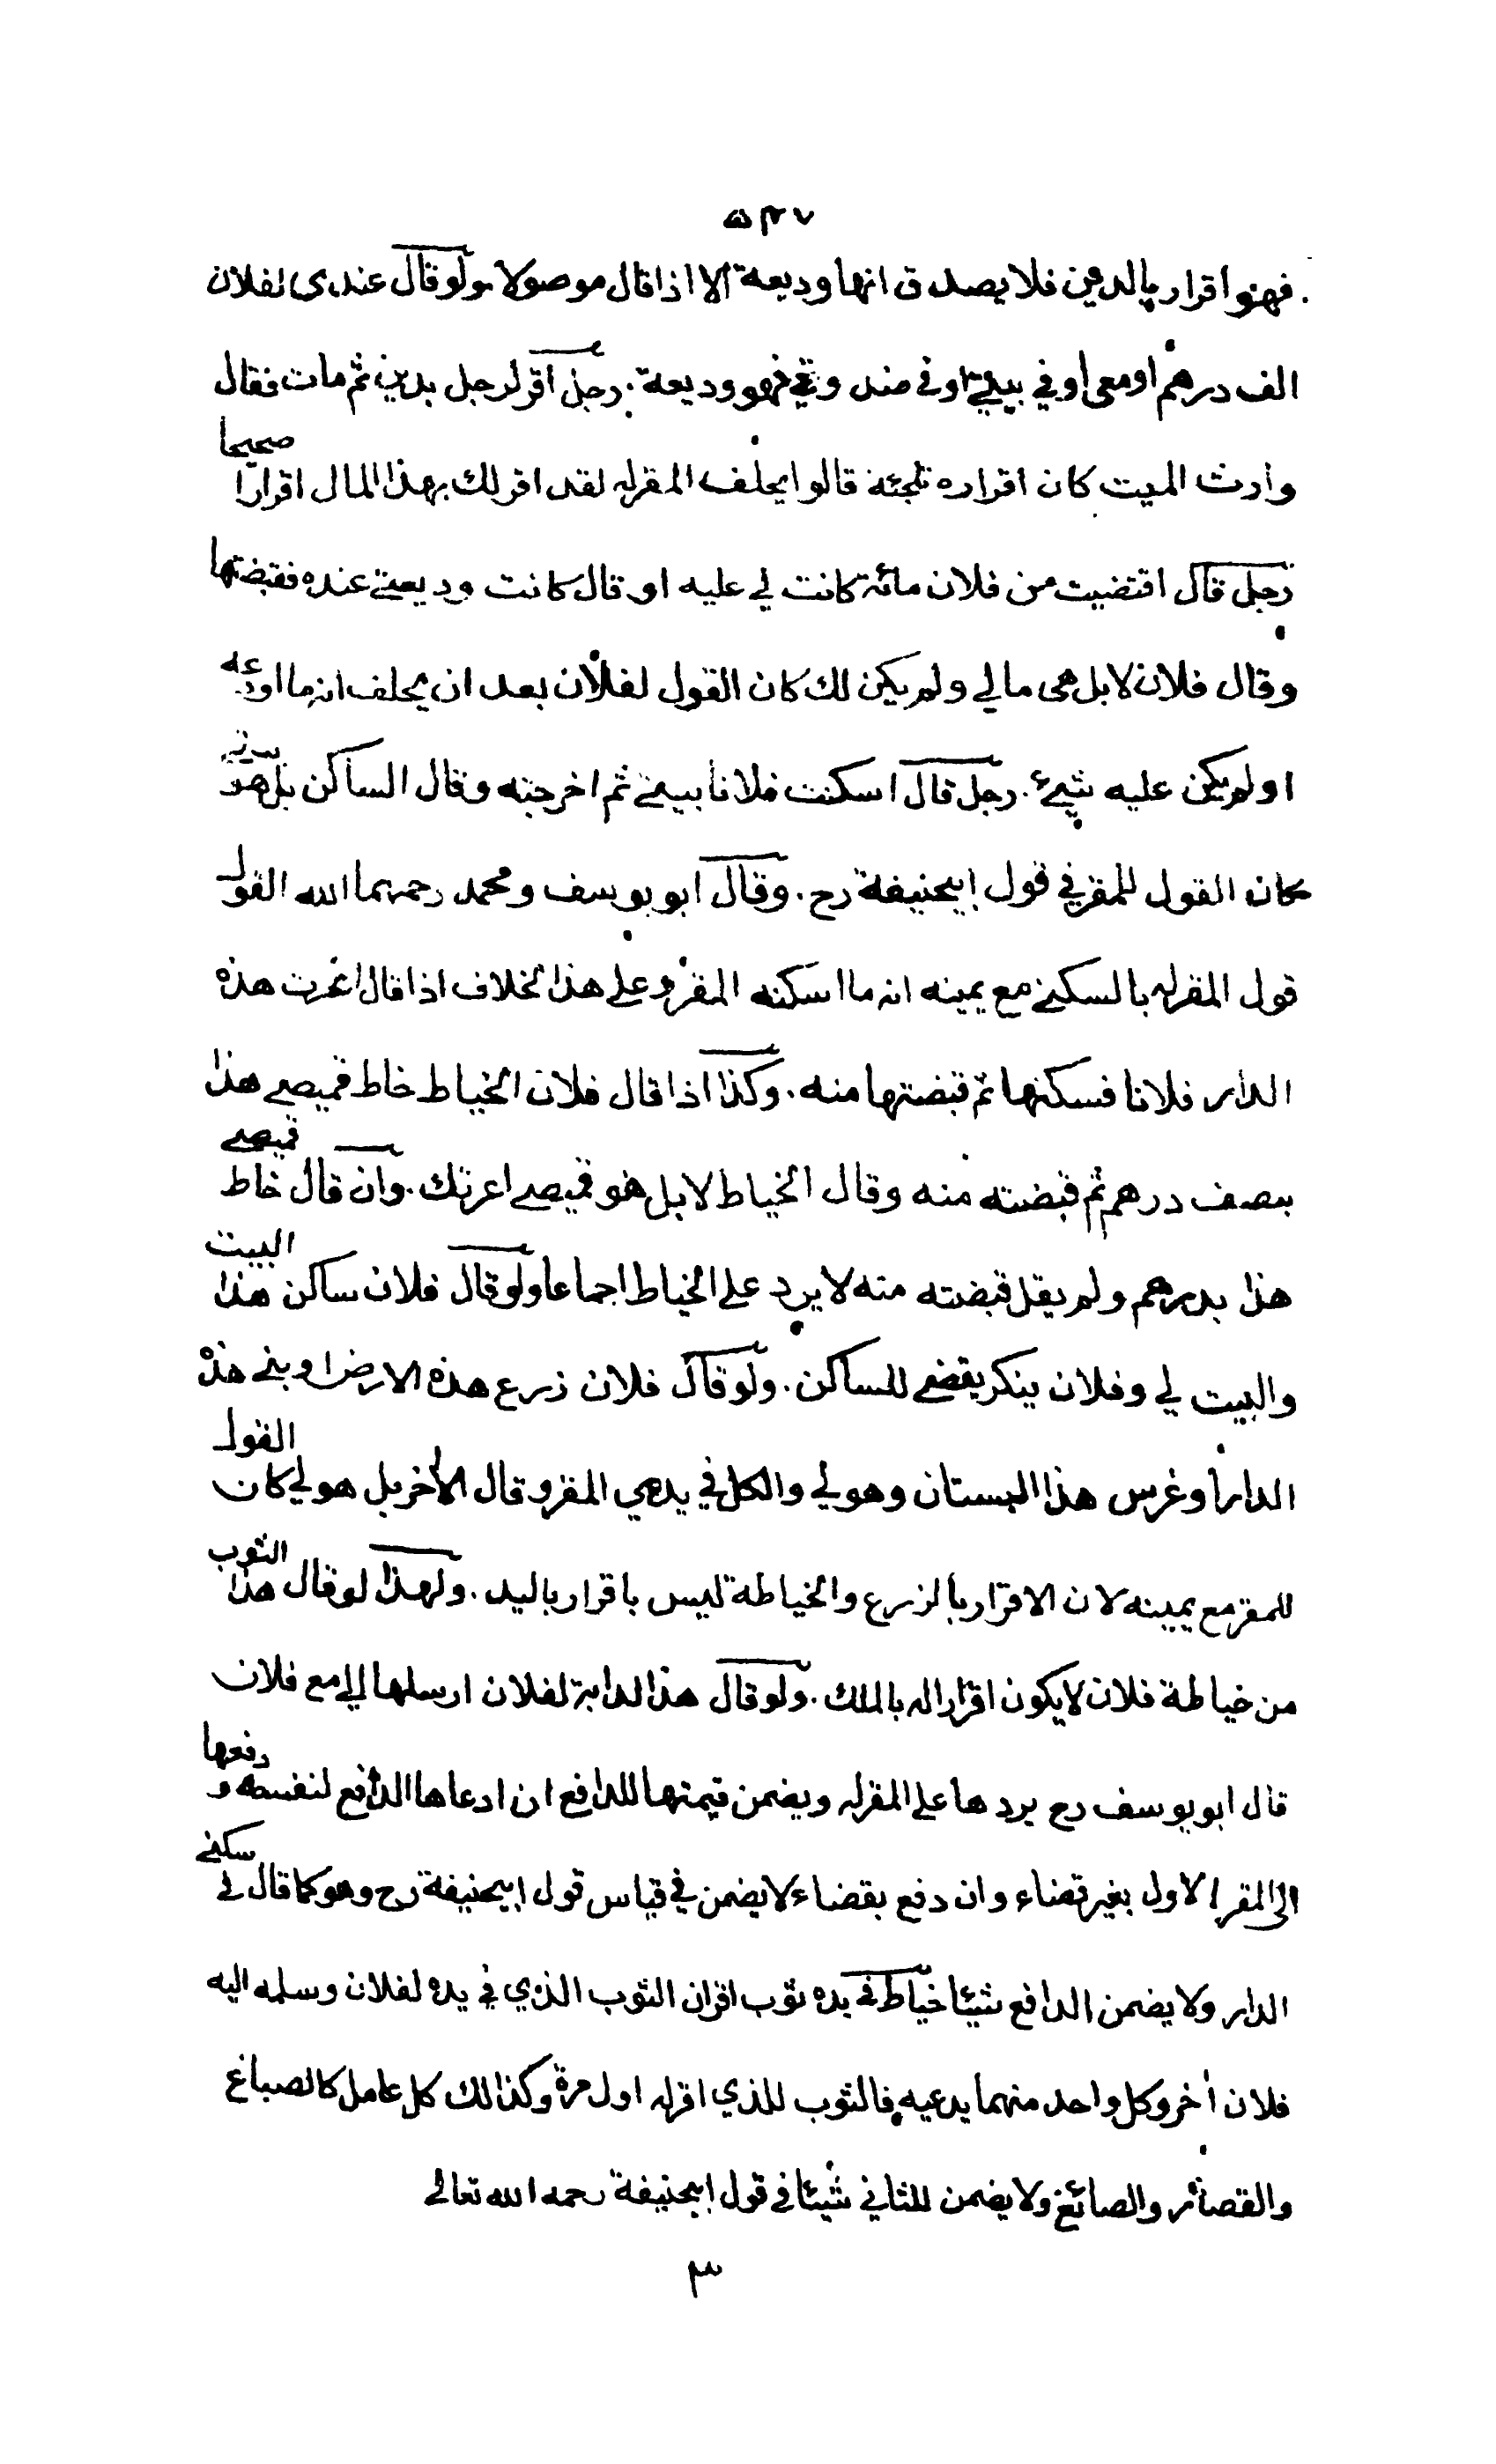 ٥٢٧
فهو اقرار بالدين فلا يصدق انها وديعة الا اذا قال موصولا ولو قال عندى لفلان
الف درهم او معى او في بيتي او في صندوقي فهو وديعة. رجل اقر لرجل بدين ثم مات فقال
وارث الميت كان اقراره تلجئة قالوا يحلف المقرله لقد اقر لك بهذا المال اقرارا صحيحا
رجل قال اقتضيت من فلان مائة كانت لي عليه او قال كانت وديعتي عنده فقبضتها
وقال فلان لا بل هى مالي ولم يكن لك كان القول لفلان بعد ان يحلف انه ما اودعه
او لم يكن عليه شيء. رجل قال اسكنت فلانا بيتي ثم اخرجته وقال الساكن بل هو بيتي
كان القول للمقر في قول ابيحنيفة رح. وقال ابو يوسف ومحمد رحمهما الله القول
قول المقرله بالسكنى مع يمينه انه ما اسكنه المقر وعلى هذا الخلاف اذا قال اعرت هذه
الدار فلانا فسكنها ثم قبضتها منه. وكذا اذا قال فلان الخياط خاط قميصي هذا
بنصف درهم ثم قبضته منه وقال الخياط لا بل هو قميصي اعرتك. وان قال خاط قميصي
هذا بدرهم ولم يقل قبضته منه لا يرد على الخياط اجماعا ولو قال فلان ساكن هذا البيت
والبيت لي وفلان ينكر يقضى للساكن. ولو قال فلان زرع هذه الارض او بنى هذه
الدار او غرس هذا البستان وهو لي والكل في يدي المقر وقال الأخر بل هو لي كان القول
للمقر مع يمينه لان الاقرار بالزرع والخياطة ليس باقرار باليد. ولهذا لو قال هذا الثوب
من خياطة فلان لا يكون اقرارا له بالملك. ولو قال هذا الدابة لفلان ارسلها الي مع فلان
قال ابو يوسف رح يردها على المقرله ويضمن قيمتها للدافع ان ادعاها الدافع لنفسه و دفعها
الى المقر الاول بغير قضاء وان دفع بقضاء لا يضمن في قياس قول ابيحنيفة رح وهو كما قال لي سكنى
الدار ولا يضمن الدافع شيئا خياط في يده ثوب اقر ان الثوب الذي في يده لفلان وسلمه اليه
فلان أخر وكل واحد منهما يدعيه فالثوب للذي اقرله اول مرة وكذالك كل عامل كالصباغ
والقصار والصائغ ولا يضمن للثاني شيئا في قول ابيحنيفة رحمه الله تعالى